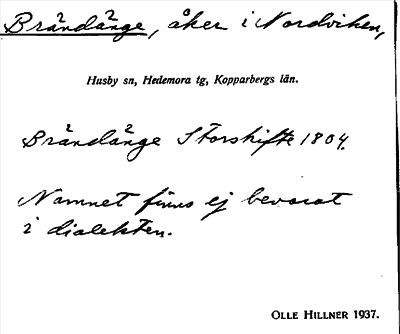 Brändänge, åker i Nordviken,
Husby sn, Hedemora tg, Kopparbergs län.
Brändänge Storskifte 1804.
Namnet finns ej bevarat
i dialekten.
OLLE HILLNER 1937.